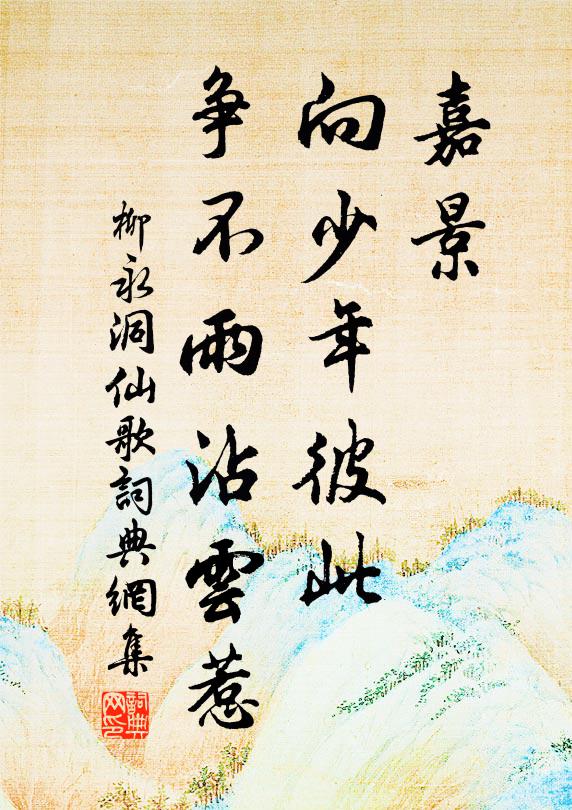 嘉景
向少年彼此
争不雨沾雲惹
柳永洞仙歌詞典網集
詞典网印